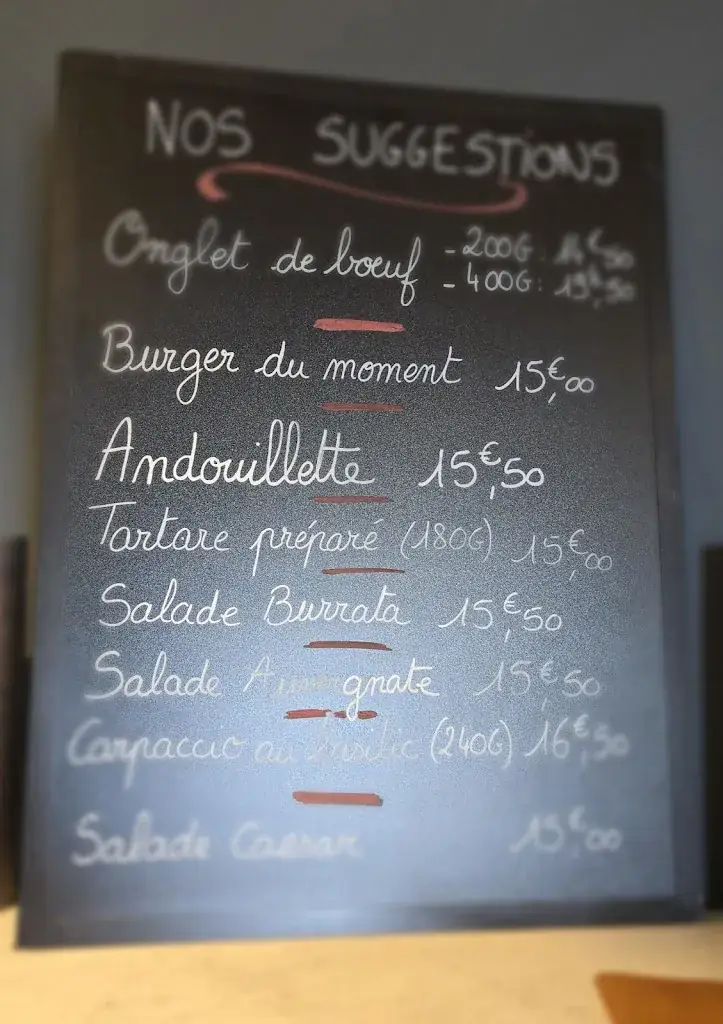 NOS SUGGESTIONS
Onglet de bœuf - 200G: 14€50
- 400G: 19€,50
Burger du moment 15€,00
Andouillette 15€,50
Tartare préparé (180G) 15€,00
Salade Burrata 15€,50
Salade Auvergnate 15€50
Carpaccio au basilic (240G) 16€,50
Salade Caesar 15€,00